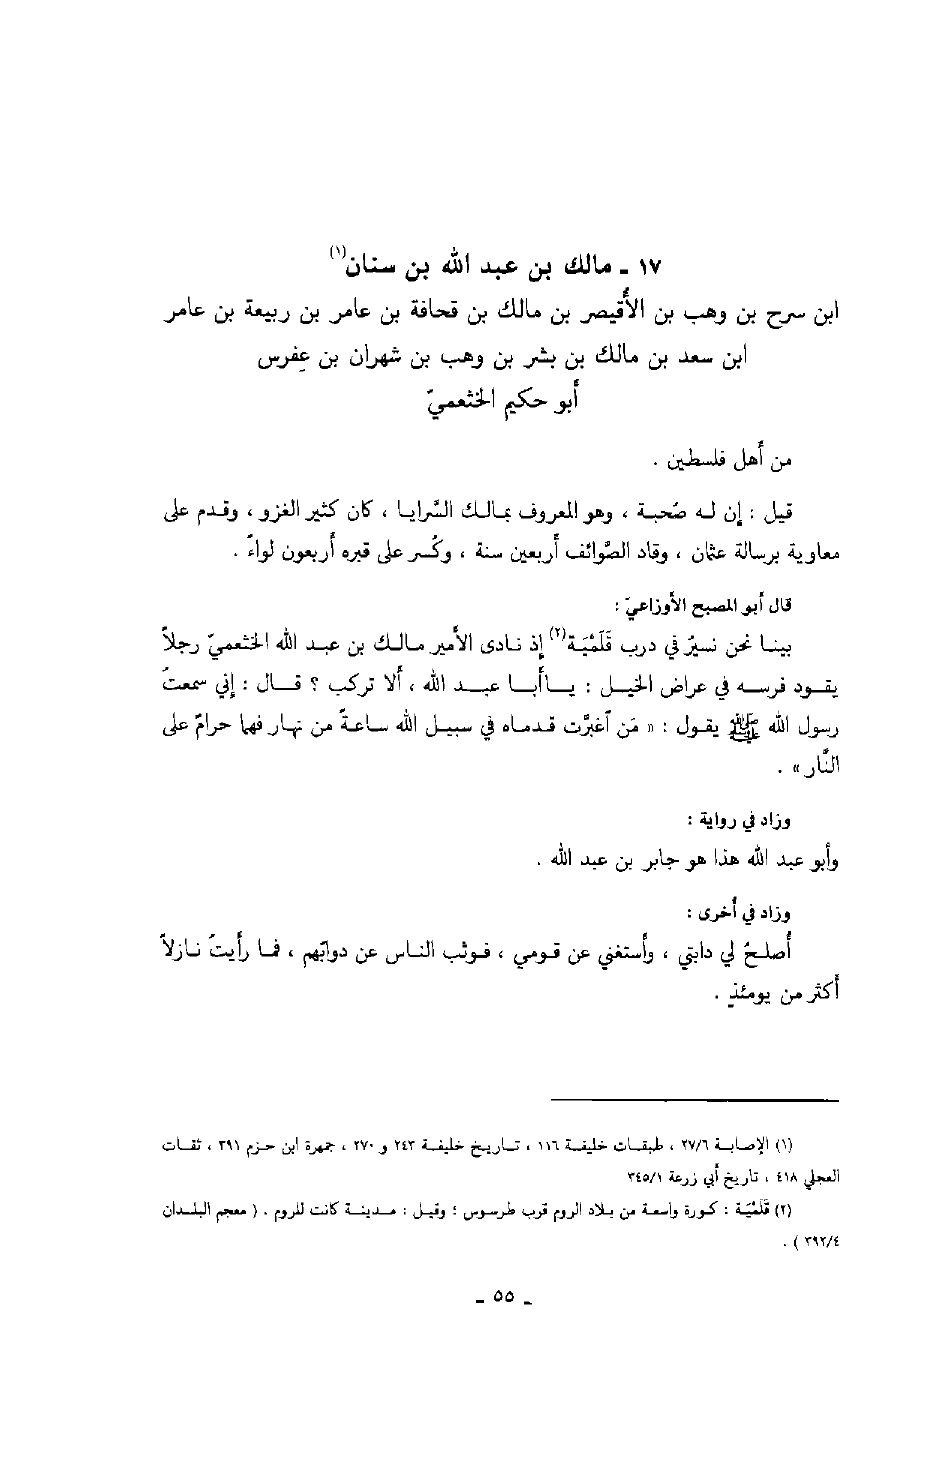 ١٧ ـ مالك بن عبد الله بن سنان(١)
ابن سرح بن وهب بن الأُقيصر بن مالك بن قحافة بن عامر بن ربيعة بن عامر
ابن سعد بن مالك بن بشر بن وهب بن شهران بن عِفرس
أبو حكيم الخثعميّ
من أهل فلسطين .
قيل : إن له صُحبة ، وهو المعروف بمالك السَّرايا ، كان كثير الغزو ، وقدم على
معاوية برسالة عثمان ، وقاد الصَّوائف أربعين سنة ، وكُسر على قبره أربعون لواءً .
قال أبو المصبح الأوزاعيّ :
بينا نحن نسيرُ في درب قَلَمْيَة(٢) إذ نادى الأمير مالك بن عبد الله الخثعميّ رجلاً
يقود فرسه في عراض الخيل : ياأبا عبد الله ، ألا تركب ؟ قال : إني سمعتُ
رسول الله ﷺ يقول : « مَن اَغبرَّت قدماه في سبيل الله ساعةً من نهار فهما حرامٌ على
النَّار » .
وزاد في رواية :
وأبو عبد الله هذا هو جابر بن عبد الله .
وزاد في أخرى :
أُصلحُ لي دابتي ، وأستغني عن قومي ، فوثب الناس عن دوابّهم ، فما رأيتُ نازلاً
أكثر من يومئذٍ .
(١) الإصابة ٢٧/٦ ، طبقات خليفة ١١٦ ، تاريخ خليفة ٢٤٣ و ٢٧٠ ، جمهرة ابن حزم ٣٩١ ، ثقات
العجلي ٤١٨ ، تاريخ أبي زرعة ٣٤٥/١
(٢) قَلَمْيَة : كورة واسعة من بلاد الروم قرب طرسوس ؛ وقيل : مدينة كانت للروم . ( معجم البلدان
٣٩٢/٤ ) .
ـ ٥٥ ـ